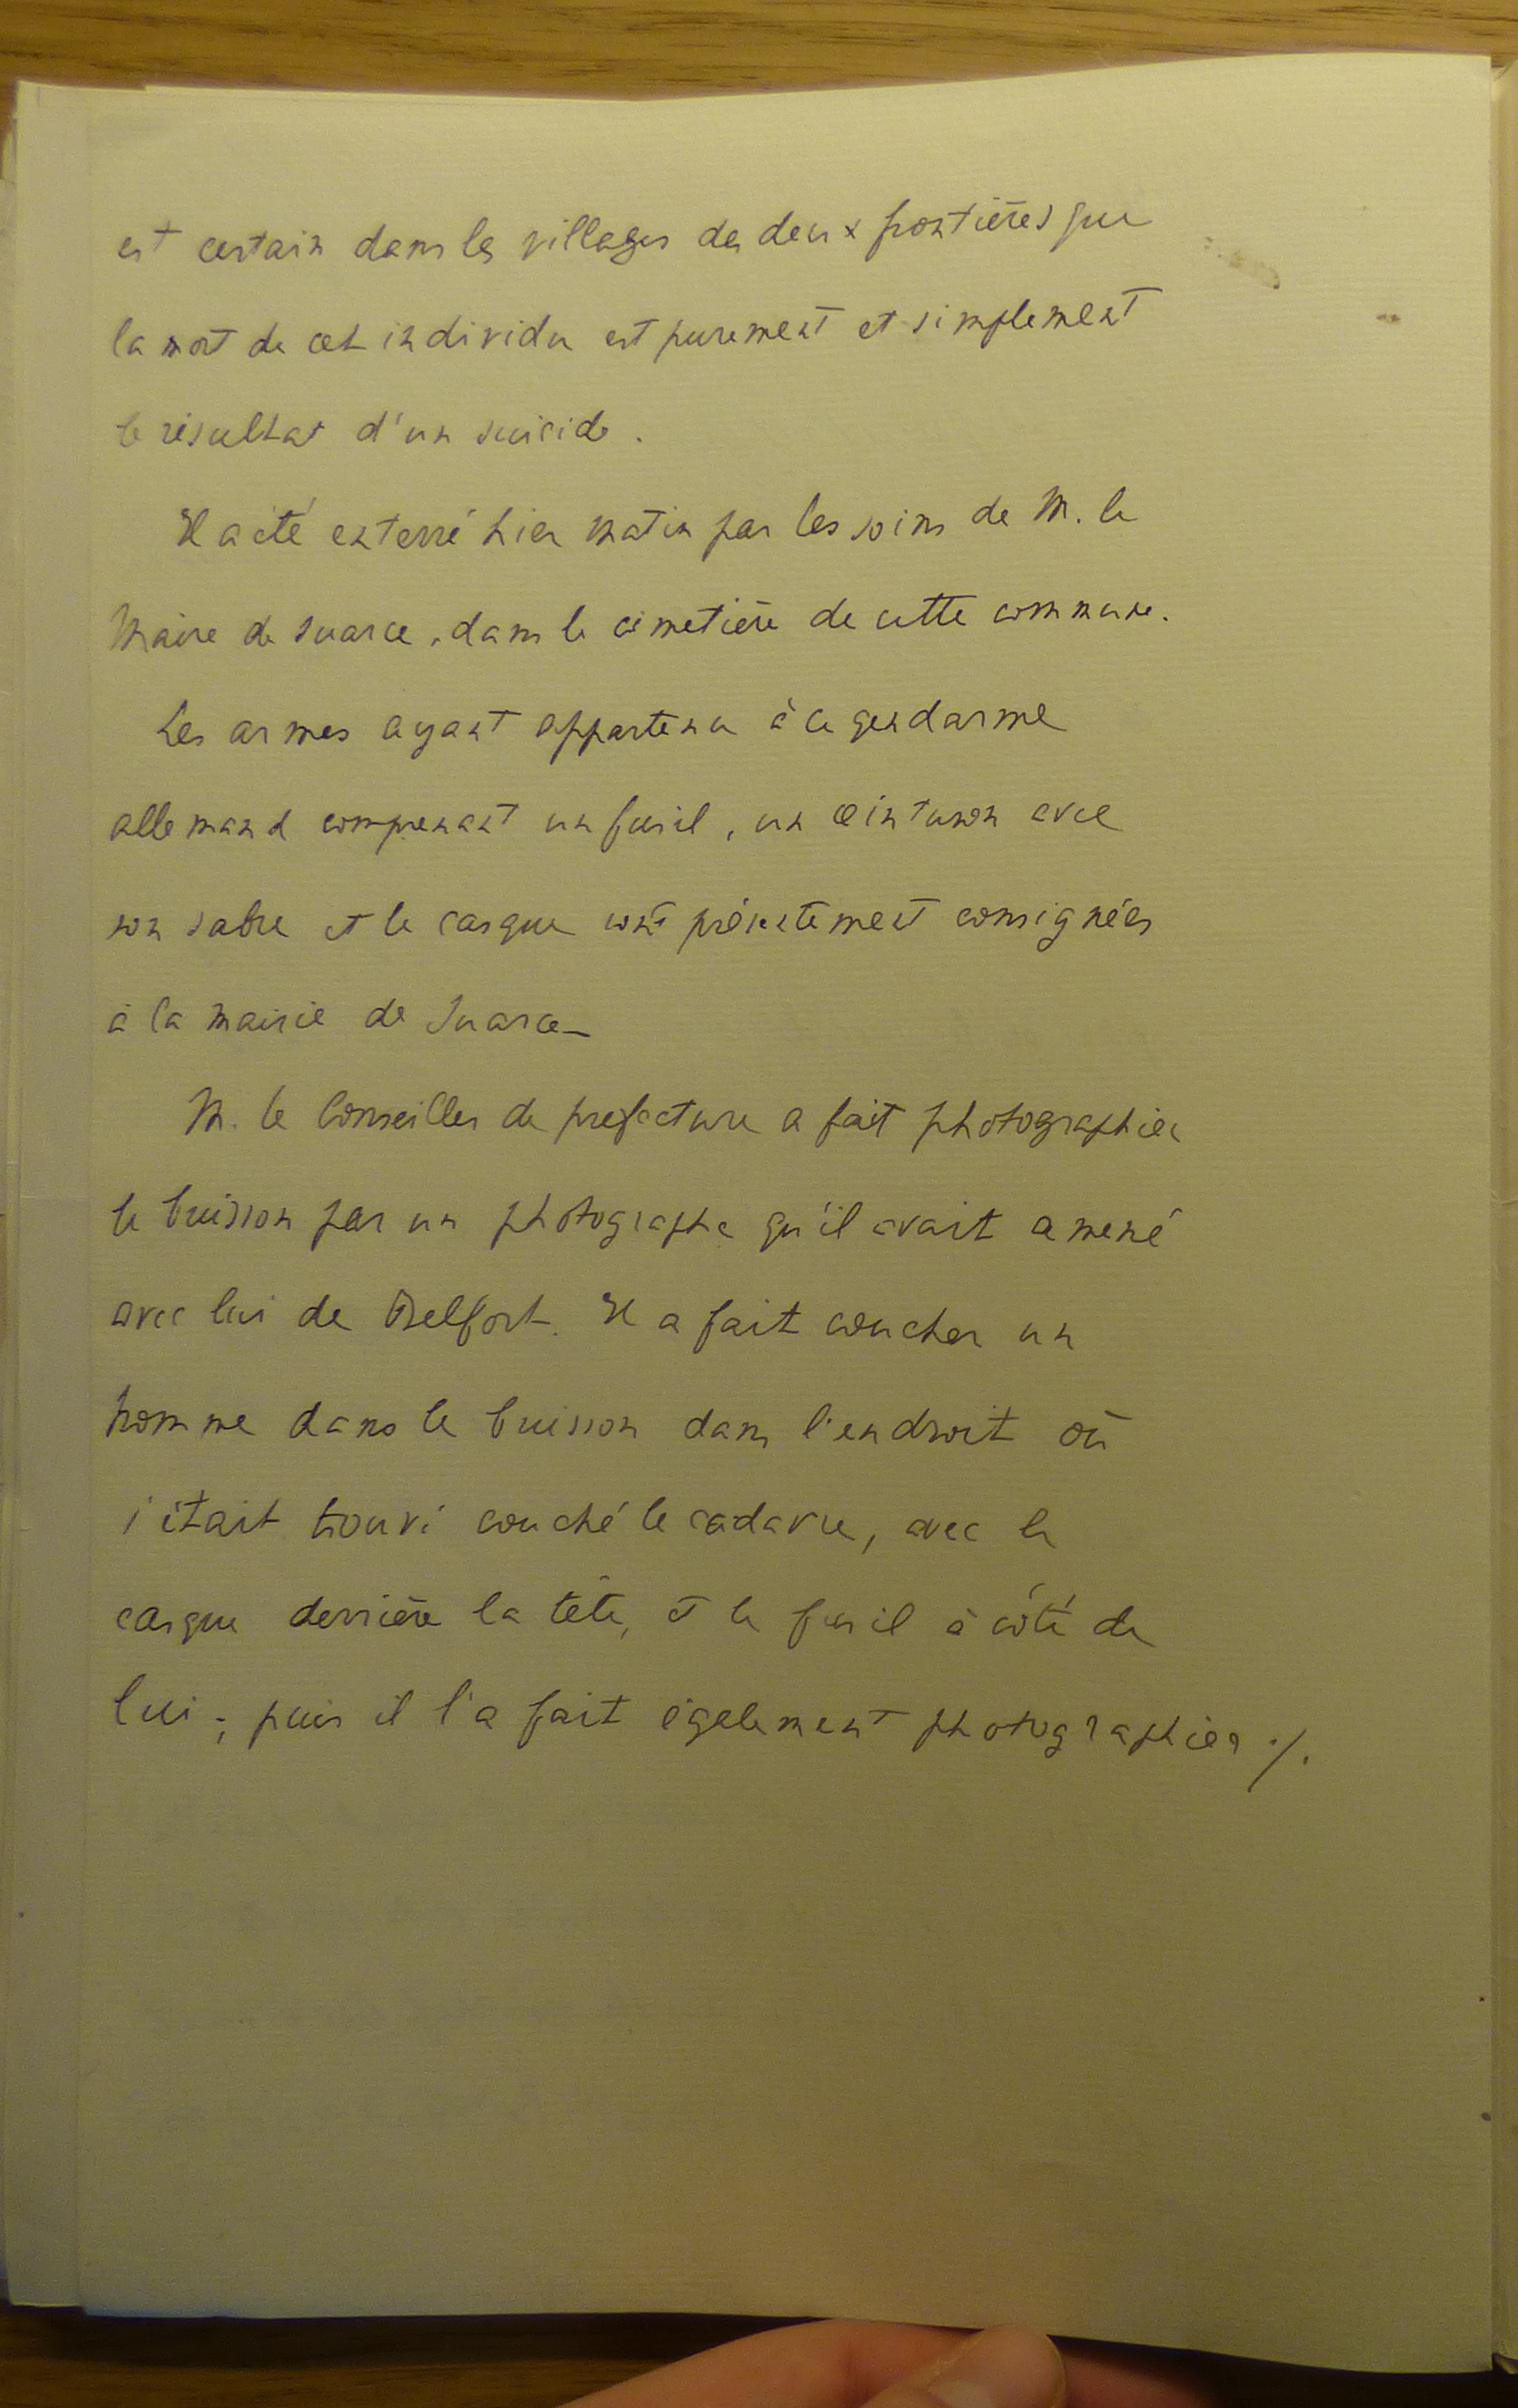 est certain dans les villages des deux frontières que
la mort de cet individu est purement et simplement
le résultat d'un suicide.
Il a été enterré hier matin par les soins de M. le
Maire de Suarce, dans le cimetière de cette commune.
Les armes ayant appartenu à ce gendarme
allemand comprenant un fusil, un ceinturon avec
son sabre et le casque sont présentement consignées
à la mairie de Suarce_
M. le Conseiller de prefecture a fait photographier
le buisson par un photographe qu'il avait amené
avec lui de Belfort. Il a fait coucher un
homme dans le buisson dans l'endroit où
s'était trouvé couché le cadavre, avec le
casque derrière la tête, et le fusil à côté de
lui ; puis il l'a fait également photographier ./.